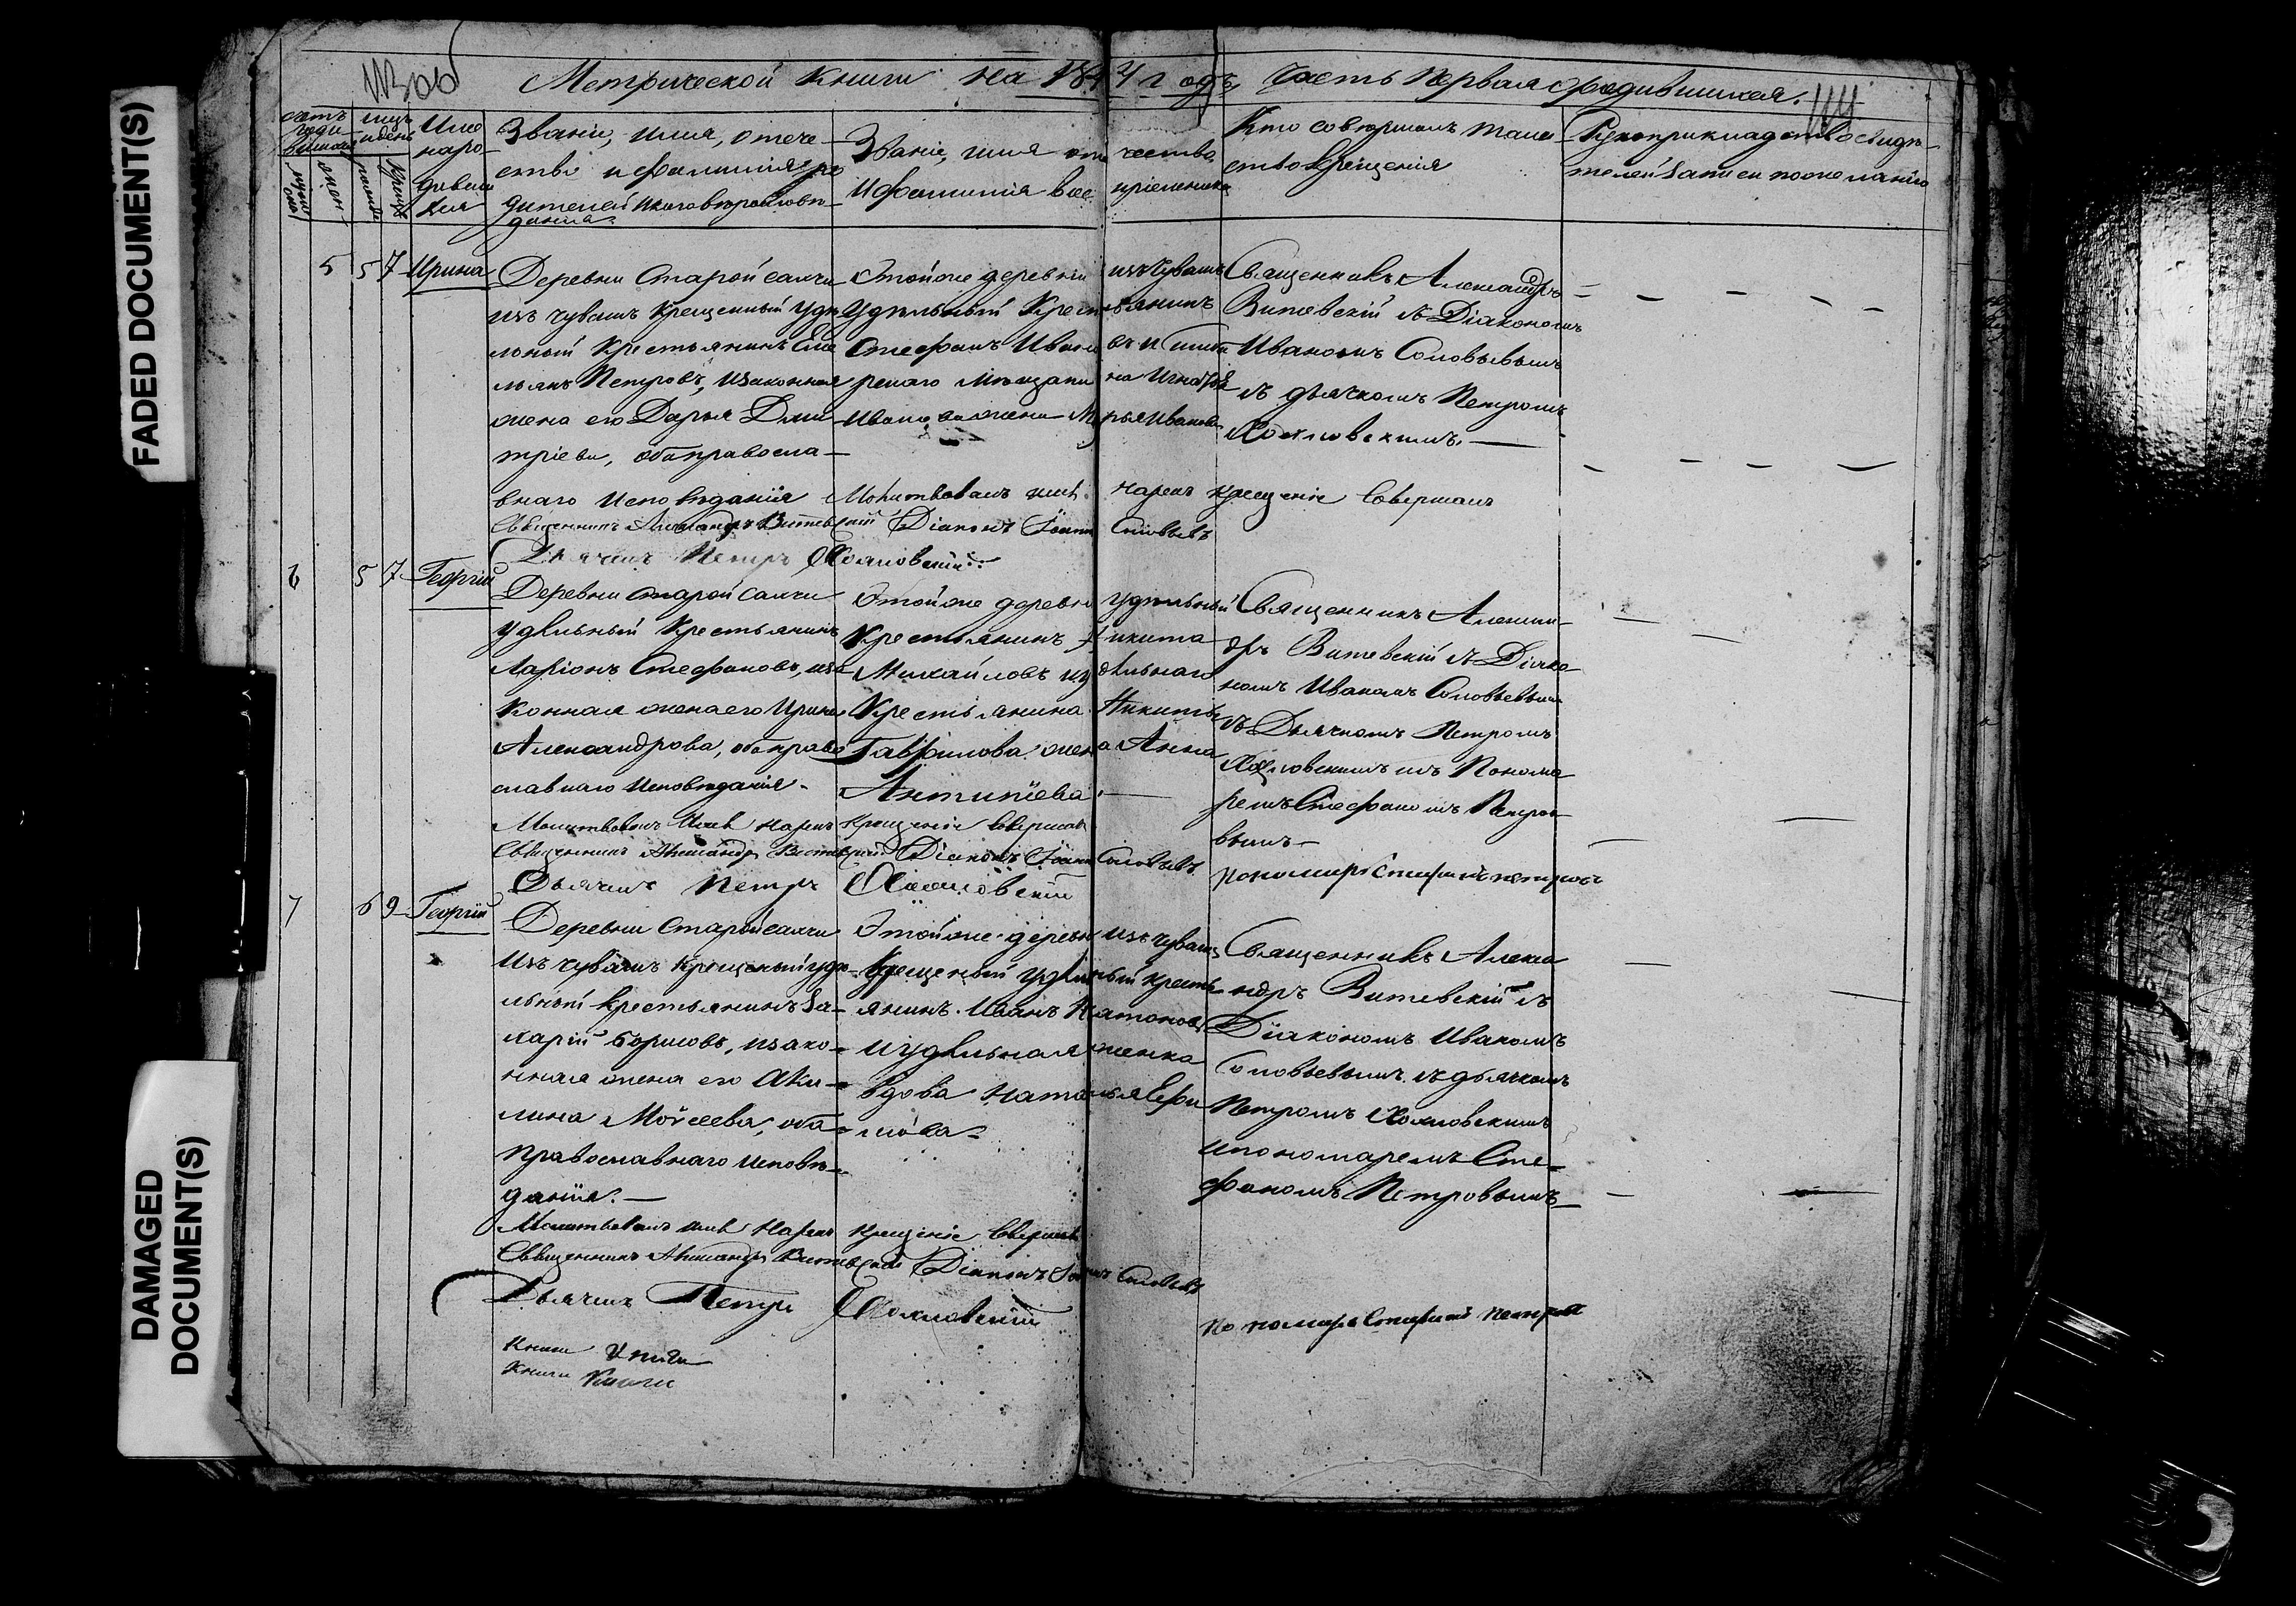 FADED DOCUMENT(S)
DAMAGED
DOCUMENT(S)
Метрической книги на 184 годъ, часть первая о родившихся.
Имѧ
наро-
дивши
хся
Званіе, имя, отече-
ство и фамилія ро
дителей и какого вѣроисповѣ-
данія.
Званіе, имя отчество
и фамилія воспріемника
Кто совершалъ таин
ство крещенія
Рукоприкладство свидѣ-
телей записи по желанію
5 5 7 Ирина
Деревни Старой
изъ чувашъ крещенный удѣ
льный крестьянинъ Еме
льянъ Петровъ, и законная
жена его Дарья Дми-
тріева, оба правосла-
внаго исповѣданія
Этой же деревни изъ чувашъ
Удѣльный Крестьянинъ
Стефанъ Ивановъ и
мѣщанина
Иванова жена Марья Иванова
Священникъ Александръ
Витевскій съ Діакономъ
Иваномъ Соловьевымъ
съ дьячкомъ Петромъ
Холмовскимъ.
Молитвовалъ имя нарекъ крещеніе совершалъ
Священникъ Александръ Витевскій Діаконъ Іоаннъ Соловьевъ
Дьячекъ Петръ Холмовскій
6 5 7 Георгій
Деревни Старой
Удѣльный Крестьянинъ
Ларіонъ Стефановъ, и за
конная жена его Ирина
Александрова, оба право
славнаго исповѣданія.
Этой же деревни удѣльный
Крестьянинъ Никита
Михайловъ и удѣльнаго
Крестьянина Никиты
Гаврилова жена Анна
Антипіева.
Священникъ Алекса-
дръ Витевскій съ Діако
номъ Иваномъ Соловьевымъ
съ Дьячкомъ Петромъ
Холмовскимъ и съ Понома
ремъ Стефаномъ Петро-
вымъ
Молитвовалъ имя нарекъ крещеніе совершалъ
Священникъ Александръ Витевскій Діаконъ Іоаннъ Соловьевъ
Дьячекъ Петръ Холмовскій
пономарь Стефанъ Петровъ
7 6 9 Георгій
Деревни Старой
изъ чувашъ крещеный удѣ
льный крестьянинъ За-
харій Борисовъ, и зако-
нная жена его Аку-
лина Моисеева, оба
православнаго исповѣ-
данія.
Этой же деревни изъ чувашъ
Крещеный удѣльный кресть
янинъ Иванъ
и удѣльная женка
вдова Наталья Ефи
мова
Священникъ Алекса
ндръ Витевскій съ
Діакономъ Иваномъ
Соловьевымъ съ дьячкомъ
Петромъ Холмовскимъ
и пономаремъ Сте-
фаномъ Петровымъ
Молитвовалъ имя нарекъ крещеніе совершалъ
Священникъ Александръ Витевскій Діаконъ Іоаннъ Соловьевъ
Дьячекъ Петръ Холмовскій
пономарь Стефанъ Петровъ
Книги Книги
Книги Книги